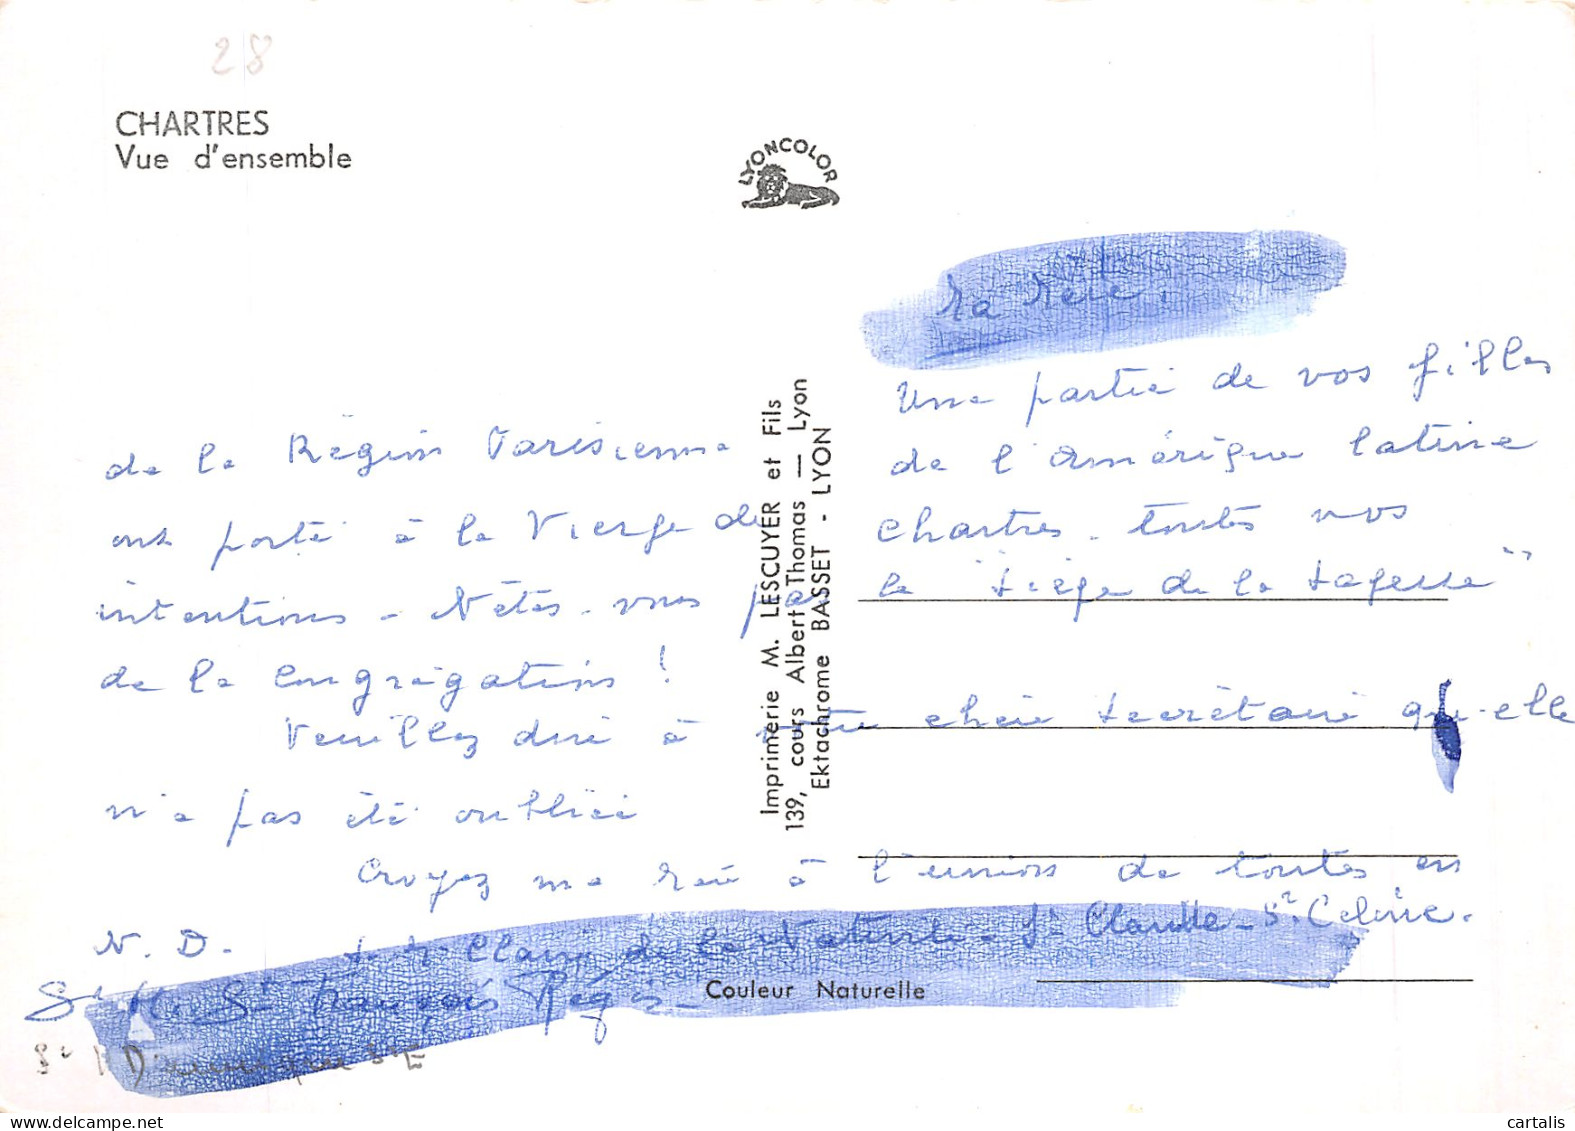 28
CHARTRES
Vue d'ensemble
LYONCOLOR
Imprimerie M. LESCUYER et Fils
139, cours Albert Thomas — Lyon
Ektachrome BASSET - LYON
Ma Mère.
Une partie de vos filles
de l'Amérique latine
de la Région Parisienne
ont porté à la Vierge de Chartres toutes vos
intentions - N'êtes-vous pas le "Siège de la Sagesse"
de la Congrégation !
Veuillez dire à votre chère secrétaire qu'elle
n'a pas été oubliée
Croyez ma Mère à l'union de toutes en
N. D. Claire de la Sr Claude - Sr Céline.
Sr St François Régis -
Couleur Naturelle
cartalis